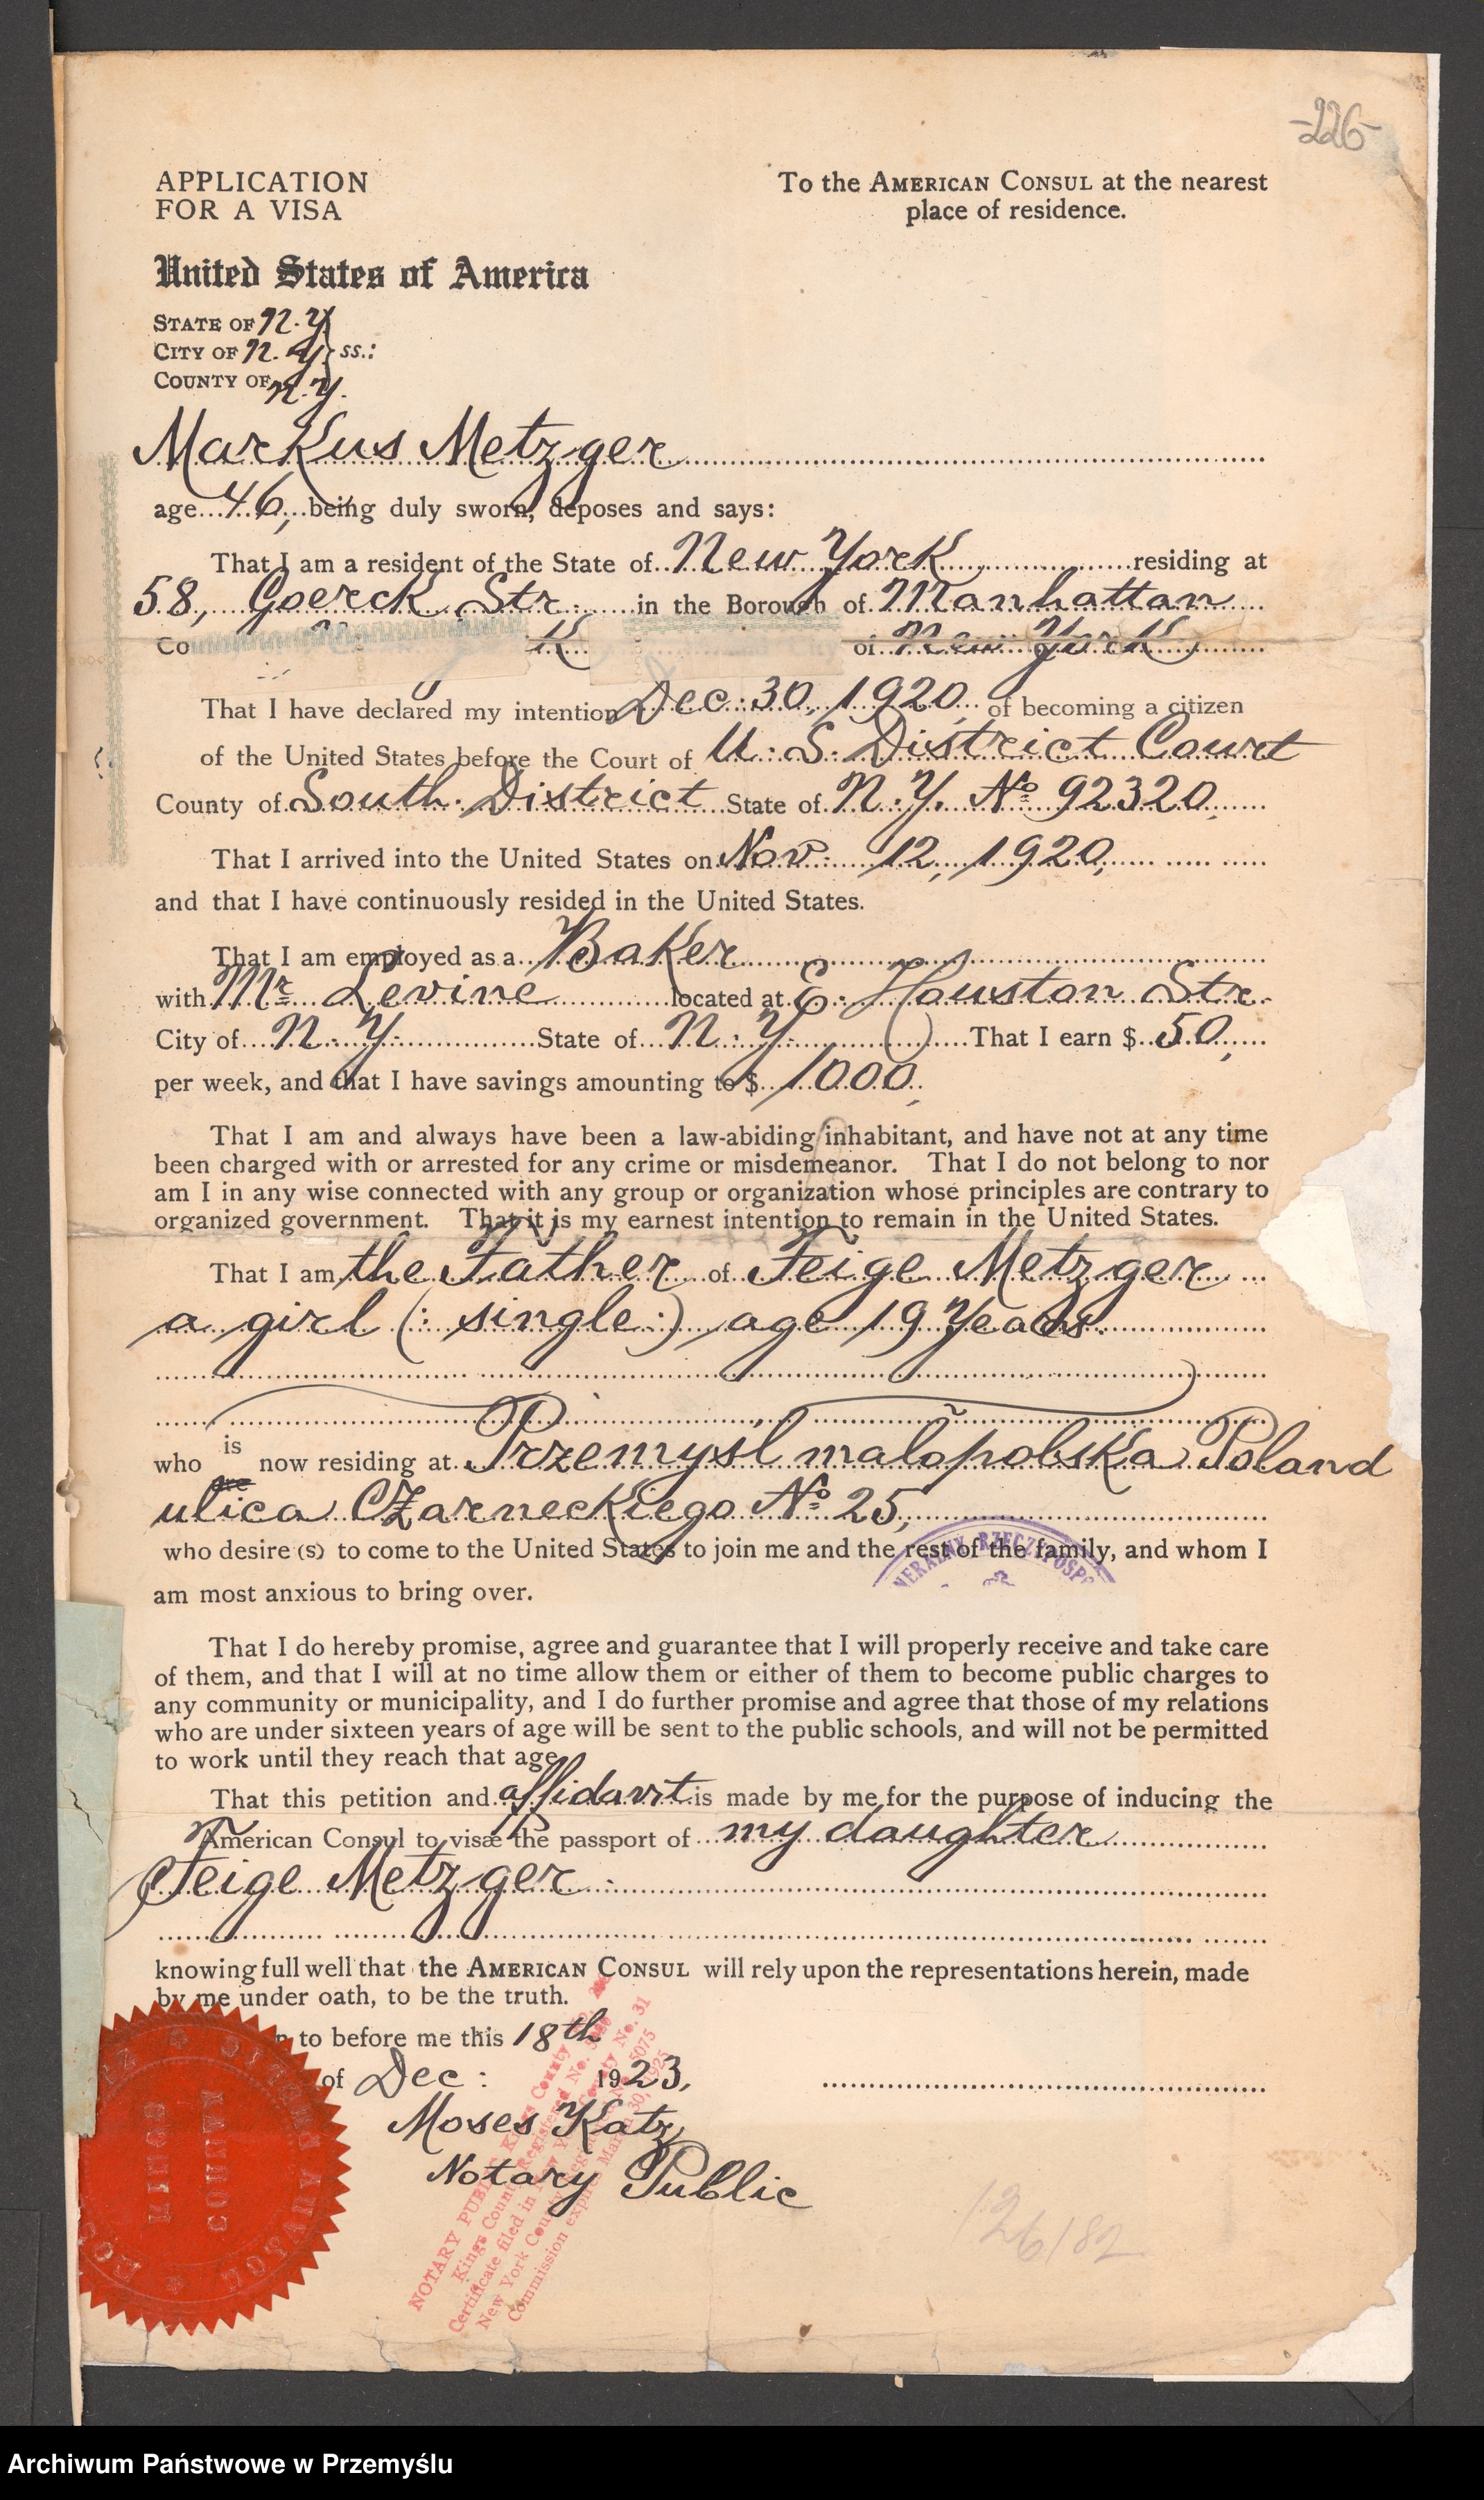 -226-
APPLICATION
FOR A VISA
To the AMERICAN CONSUL at the nearest
place of residence.
United States of America
STATE OF N.Y.
CITY OF N.Y. ss.:
COUNTY OF N.Y.
Markus Metzger
age 46, being duly sworn, deposes and says:
That I am a resident of the State of New York residing at
58, Goerck Str. in the Borough of Manhattan
Co K of New York
That I have declared my intention Dec: 30, 1920, of becoming a citizen
of the United States before the Court of U.S. District Court
County of South. District State of N.Y. No 92320,
That I arrived into the United States on Nov: 12, 1920,
and that I have continuously resided in the United States.
That I am employed as a Baker
with Mr Levine located at E. Houston Str.
City of N.Y. State of N.Y. That I earn $ 50,
per week, and that I have savings amounting to $ 1000,
That I am and always have been a law-abiding inhabitant, and have not at any time
been charged with or arrested for any crime or misdemeanor. That I do not belong to nor
am I in any wise connected with any group or organization whose principles are contrary to
organized government. That it is my earnest intention to remain in the United States.
That I am the Father of Feige Metzger
a girl (: single :) age 19 Years.
who is are now residing at Przemysl malopolska Poland
ulica Czarneckiego No 25,
who desire (s) to come to the United States to join me and the rest of the family, and whom I
NERALNY RZECZYPOSP
am most anxious to bring over.
That I do hereby promise, agree and guarantee that I will properly receive and take care
of them, and that I will at no time allow them or either of them to become public charges to
any community or municipality, and I do further promise and agree that those of my relations
who are under sixteen years of age will be sent to the public schools, and will not be permitted
to work until they reach that age.
That this petition and affidavit is made by me for the purpose of inducing the
American Consul to visæ the passport of my daughter
Feige Metzger.
knowing full well that the AMERICAN CONSUL will rely upon the representations herein, made
by me under oath, to be the truth.
n to before me this 18th
of Dec: 1923,
Moses Katz
Notary Public
NOTARY PUBLIC Kings County
Kings County Registered No.
Certificate filed in New York County No. 31
New York County Register No. 5075
Commission expires March 30, 1925
KINGS
COUNTY
NOTARY PUBLIC
126182
Archiwum Państwowe w Przemyślu